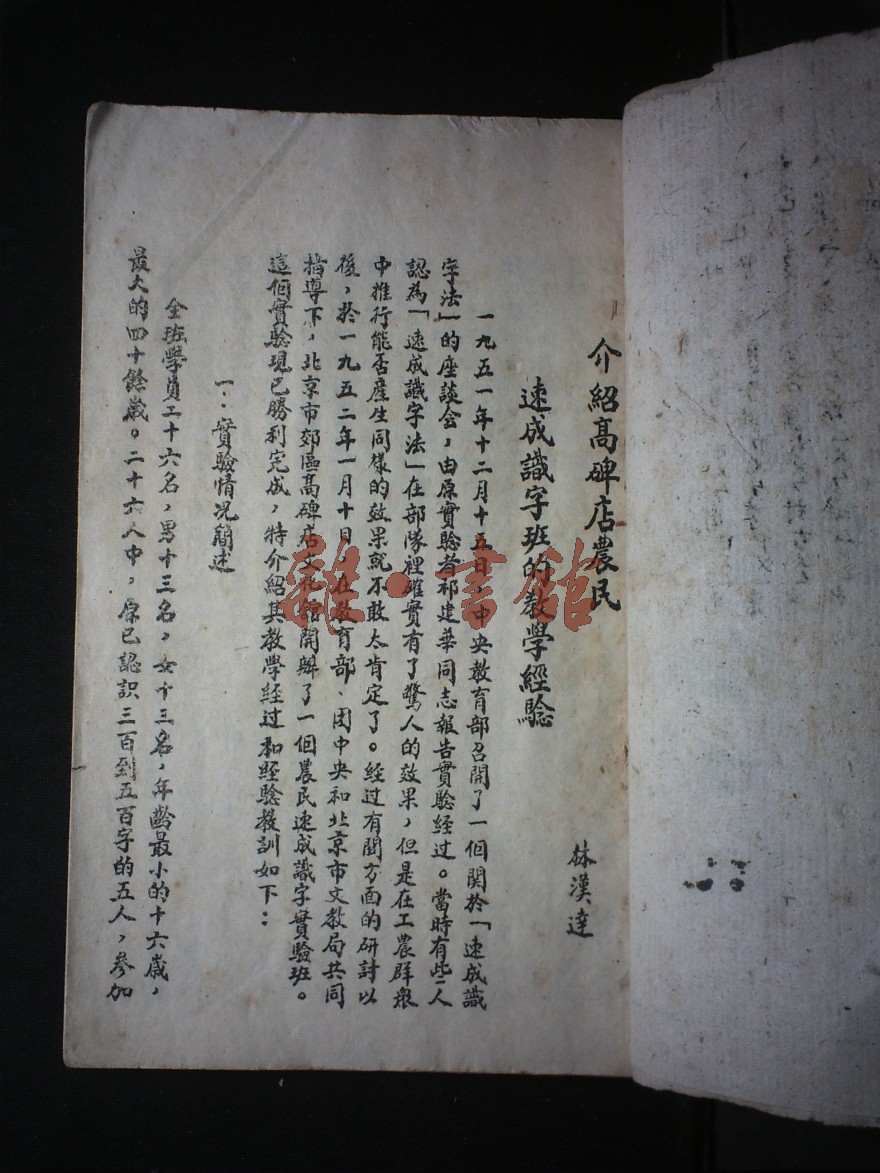 介紹高碑店農民
速成識字班的教學經驗
林漢達
一九五一年十二月十五日，中央教育部召開了一個關於「速成識
字法」的座談会，由原實驗者祁建華同志報告實驗經过。當時有些人
認為「速成識字法」在部隊裡確實有了驚人的效果，但是在工農群衆
中推行能否產生同樣的效果就不敢太肯定了。經过有関方面的研討以
後，於一九五二年一月十日，在教育部、团中央和北京市文教局共同
指導下，北京市郊區高碑店文化館開辦了一個農民速成識字實驗班。
這個實驗現已勝利完成，特介紹其教學經过和經驗教訓如下：
一：實驗情况簡述
全班學員二十六名，男十三名，女十三名，年齡最小的十六歲，
最大的四十餘歲。二十六人中，原已認識三百到五百字的五人，參加
雜·書館